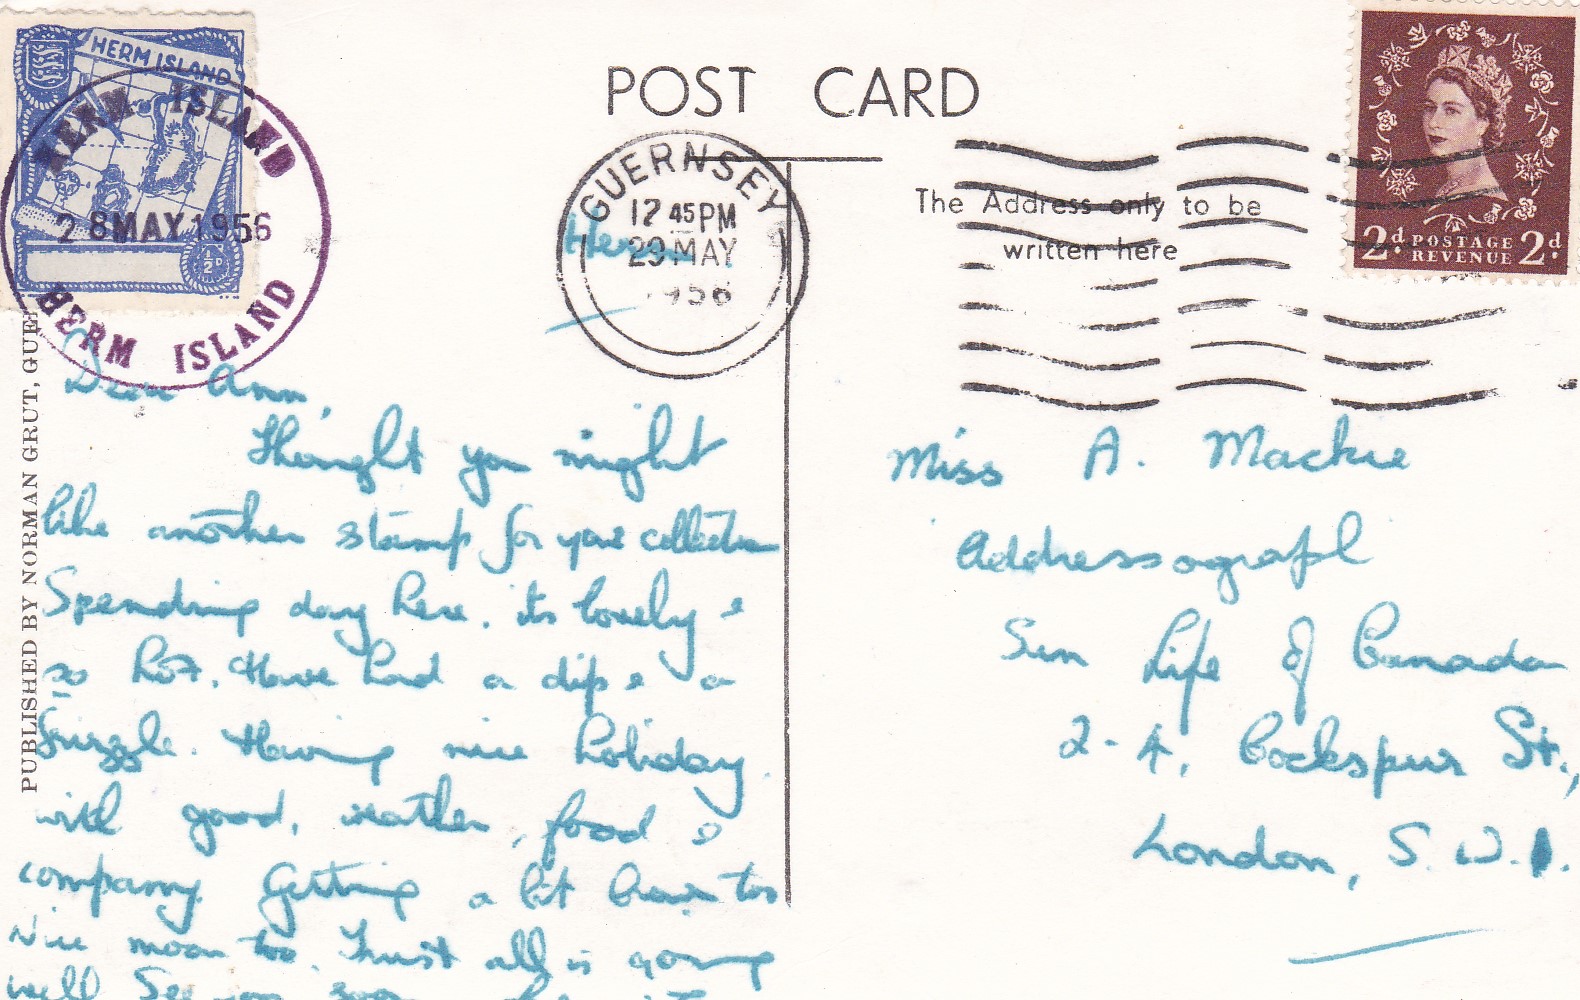 HERM ISLAND
½D
HERM ISLAND
28 MAY 1956
HERM ISLAND
POST CARD
GUERNSEY
12 45 PM
29 MAY
1956
The Address only to be
written here
2d. POSTAGE 2d.
REVENUE
PUBLISHED BY NORMAN GRUT, GUE
Herm
Dear Ann,
Thought you might
like another stamp for your collection
Spending day here. its lovely &
so hot. Have had a dip & a
frizzle. Having nice holiday
with good, weather, food &
company. Getting a bit brown too
Nice moon too. Trust all is going
well See you soon
Miss A. Mackie
Addressograph
Sun Life of Canada
2-4, Cockspur St.,
London, S.W.1.